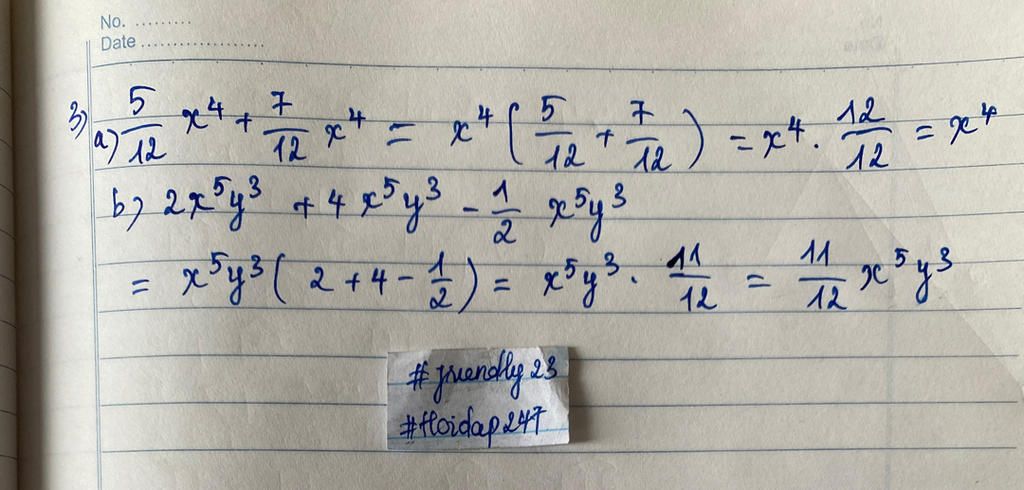 No. .........
Date ...................
3) a) 5/12 x⁴ + 7/12 x⁴ = x⁴ ( 5/12 + 7/12 ) = x⁴ . 12/12 = x⁴
b) 2x⁵y³ + 4x⁵y³ - 1/2 x⁵y³
= x⁵y³ ( 2 + 4 - 1/2 ) = x⁵y³ . 11/12 = 11/12 x⁵y³
# friendly 23
#Hoidap247